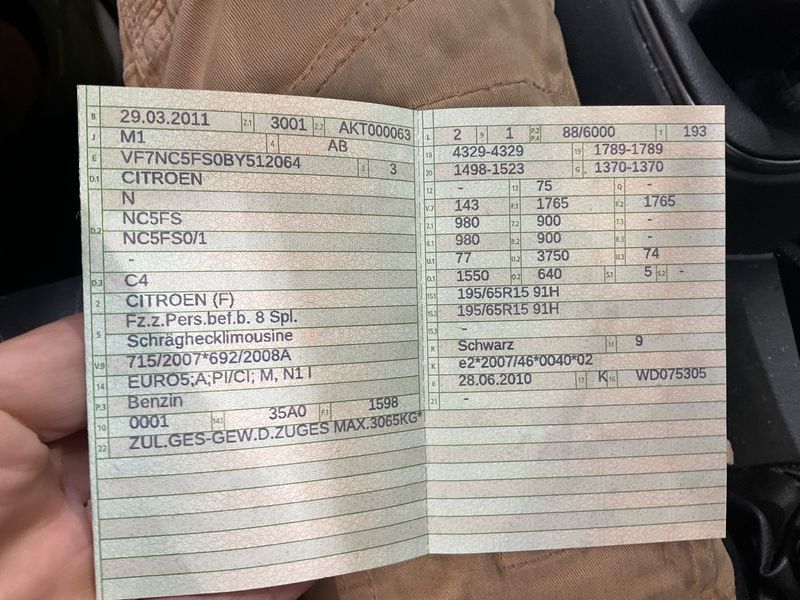 B 29.03.2011 2.1 3001 2.2 AKT000063
J M1 4 AB
E VF7NC5FS0BY512064 3 3
D.1 CITROEN
D.2 N
NC5FS
NC5FS0/1
-
D.3 C4
2 CITROEN (F)
5 Fz.z.Pers.bef.b. 8 Spl.
Schräghecklimousine
V.9 715/2007*692/2008A
14 EURO5;A;PI/CI; M, N1 I
P.3 Benzin
10 0001 14.1 35A0 P.1 1598
22 ZUL.GES-GEW.D.ZUGES MAX.3065KG*
L 2 9 1 P.2 P.4 88/6000 T 193
18 4329-4329 19 1789-1789
20 1498-1523 G 1370-1370
12 - 13 75 Q -
V.7 143 F.1 1765 F.2 1765
7.1 980 7.2 900 7.3 -
8.1 980 8.2 900 8.3 -
U.1 77 U.2 3750 U.3 74
O.1 1550 O.2 640 S.1 5 S.2 -
15.1 195/65R15 91H
15.2 195/65R15 91H
15.3 -
R Schwarz 11 9
K e2*2007/46*0040*02
6 28.06.2010 17 K 16 WD075305
21 -